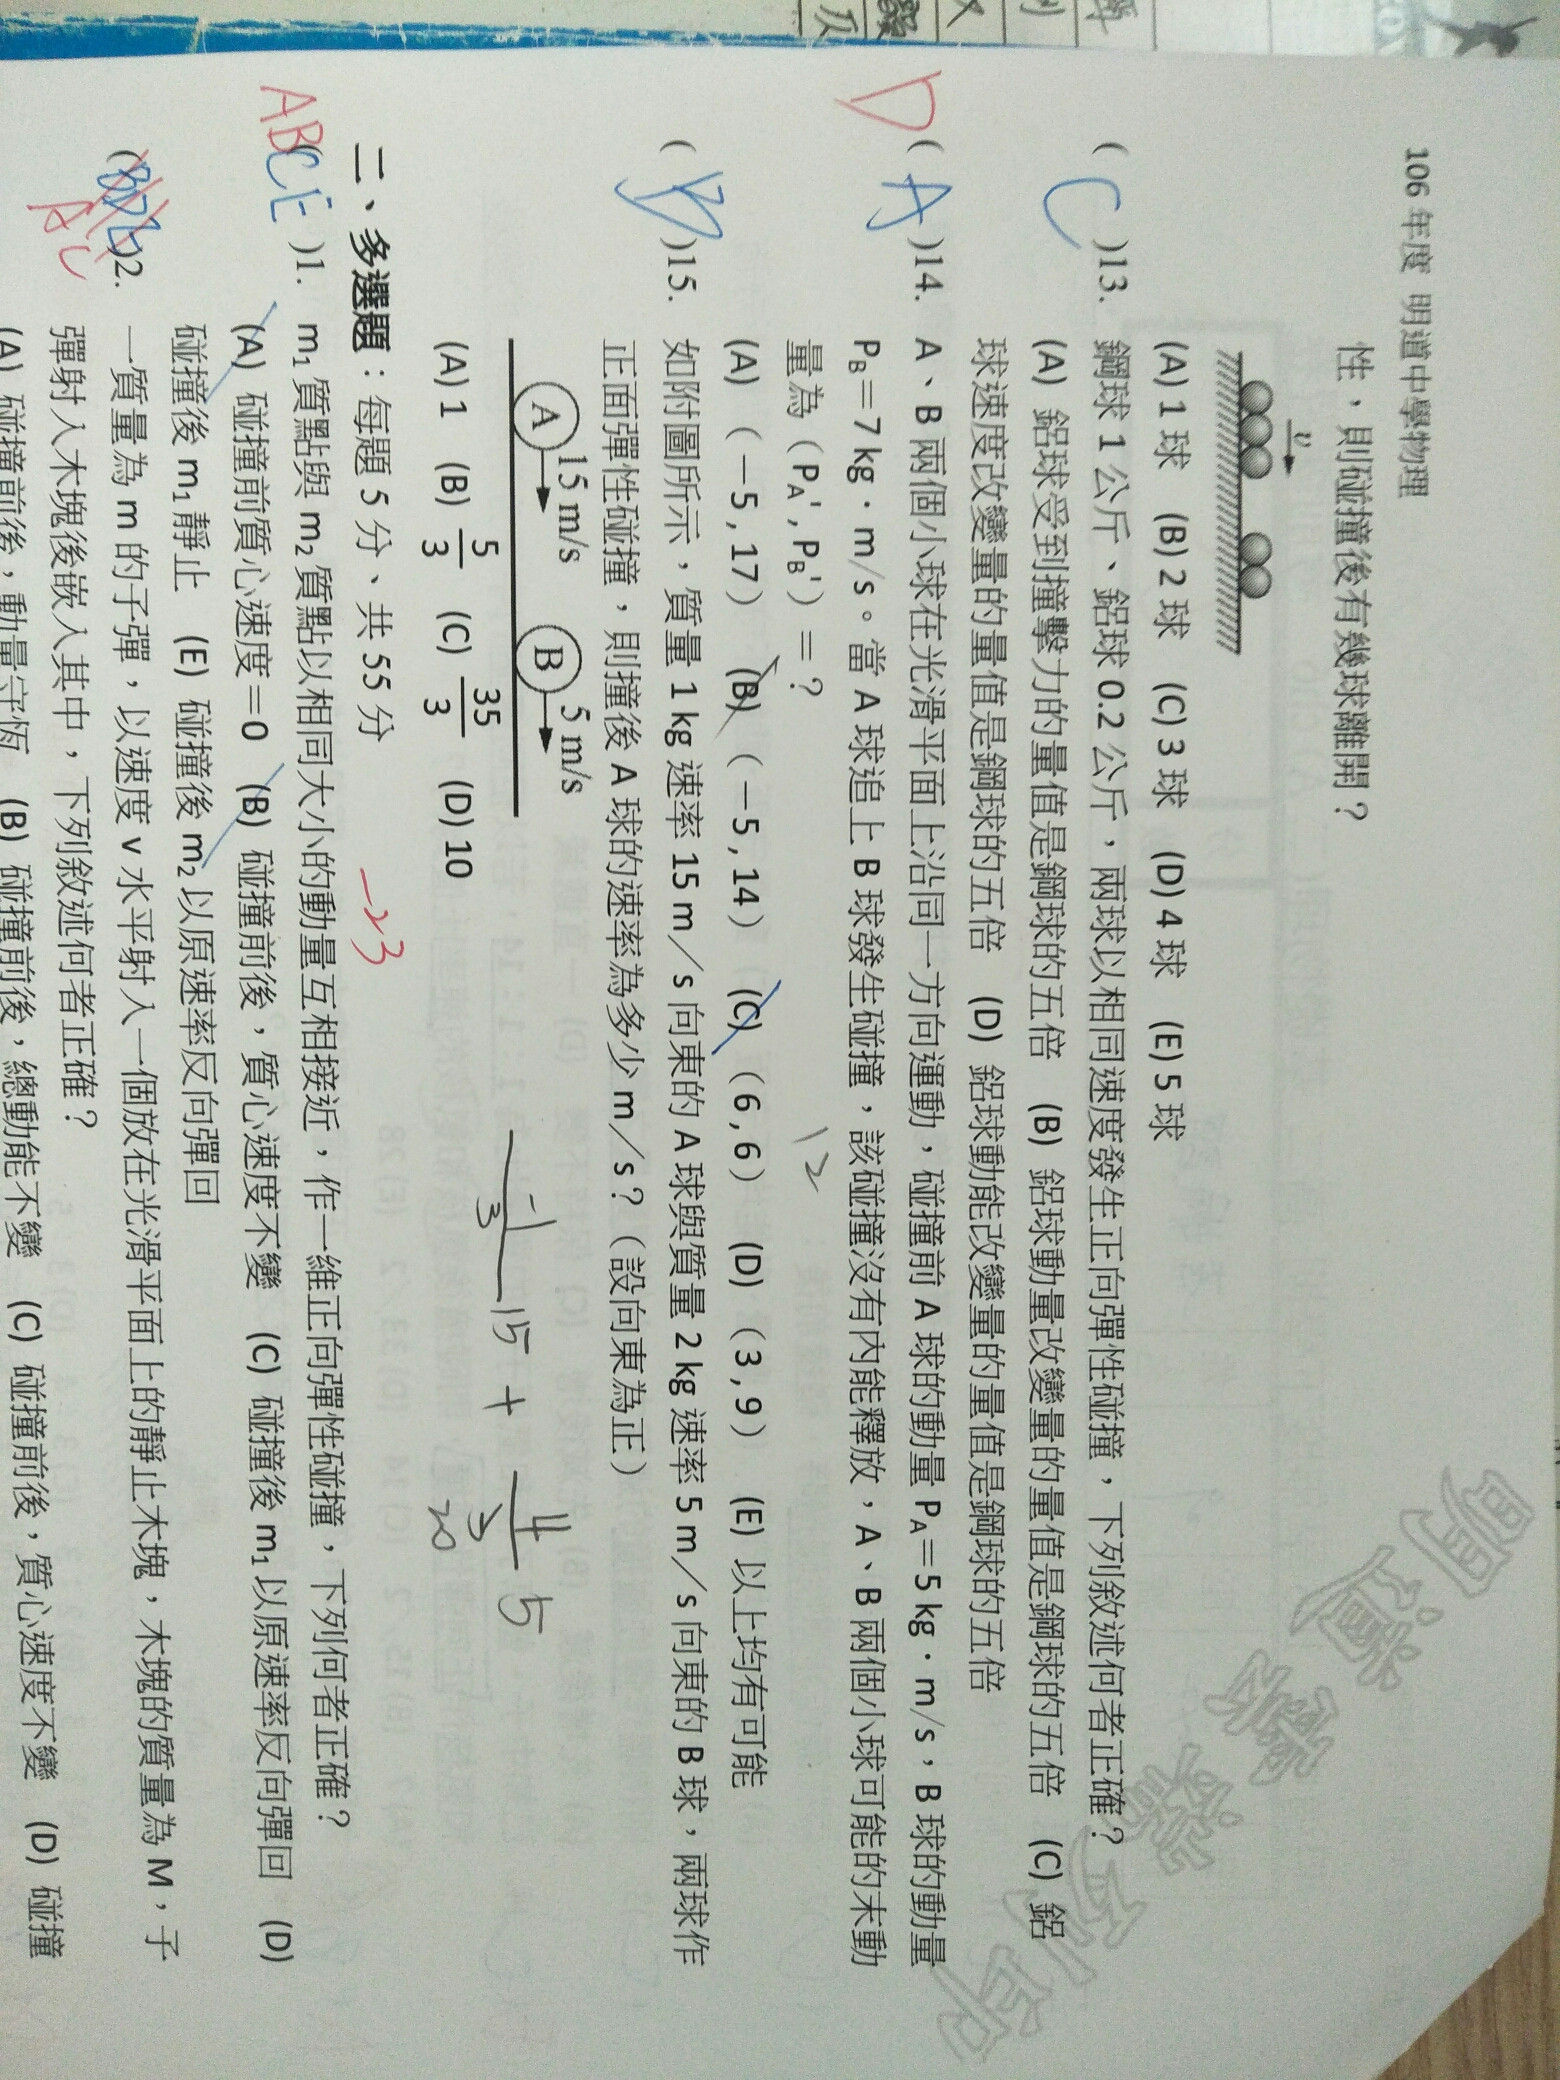 106 年度 明道中學物理
性，則碰撞後有幾球離開？
v
(A) 1 球 (B) 2 球 (C) 3 球 (D) 4 球 (E) 5 球
( C )13. 鋼球 1 公斤、鋁球 0.2 公斤，兩球以相同速度發生正向彈性碰撞，下列敘述何者正確？
(A) 鋁球受到撞擊力的量值是鋼球的五倍 (B) 鋁球動量改變量的量值是鋼球的五倍 (C) 鋁
球速度改變量的量值是鋼球的五倍 (D) 鋁球動能改變量的量值是鋼球的五倍
D ( A )14. A、B 兩個小球在光滑平面上沿同一方向運動，碰撞前 A 球的動量 PA＝5 kg．m/s，B 球的動量
PB＝7 kg．m/s。當 A 球追上 B 球發生碰撞，該碰撞沒有內能釋放，A、B 兩個小球可能的末動
量為（PA'，PB'）＝？
12
(A) （－5 , 17） (B) （－5 , 14） (C) （6 , 6） (D) （3 , 9） (E) 以上均有可能
( B )15. 如附圖所示，質量 1 kg 速率 15 m／s 向東的 A 球與質量 2 kg 速率 5 m／s 向東的 B 球，兩球作
正面彈性碰撞，則撞後 A 球的速率為多少 m／s？（設向東為正）
15 m/s 5 m/s
A B
-1/3 15 + 4/3 5
20
(A) 1 (B) 5/3 (C) 35/3 (D) 10
二、多選題：每題 5 分、共 55 分 -23
AB(CE )1. m1 質點與 m2 質點以相同大小的動量互相接近，作一維正向彈性碰撞，下列何者正確？
(A) 碰撞前質心速度＝0 (B) 碰撞前後，質心速度不變 (C) 碰撞後 m1 以原速率反向彈回 (D)
碰撞後 m1 靜止 (E) 碰撞後 m2 以原速率反向彈回
( )2. 一質量為 m 的子彈，以速度 v 水平射入一個放在光滑平面上的靜止木塊，木塊的質量為 M，子
AC
彈射入木塊後嵌入其中，下列敘述何者正確？
(A) 碰撞前後，動量守恆 (B) 碰撞前後，總動能不變 (C) 碰撞前後，質心速度不變 (D) 碰撞